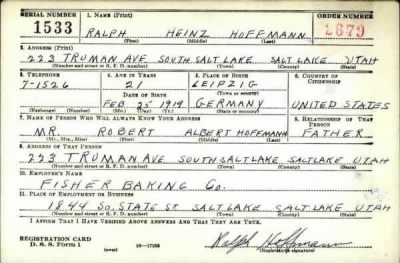 SERIAL NUMBER 1. NAME (Print) ORDER NUMBER
1533 RALPH HEINZ HOFFMANN 2679
(First) (Middle) (Last)
2. ADDRESS (Print)
223 TRUMAN AVE SOUTH SALT LAKE SALT LAKE UTAH
(Number and street or R. F. D. number) (Town) (County) (State)
3. TELEPHONE 4. AGE IN YEARS 5. PLACE OF BIRTH 6. COUNTRY OF CITIZENSHIP
7-1526 21 LEIPZIG
DATE OF BIRTH (Town) (County)
FEB 25 1919 GERMANY UNITED STATES
(Exchange) (Number) (Mo.) (Day) (Yr.) (State or country)
7. NAME OF PERSON WHO WILL ALWAYS KNOW YOUR ADDRESS 8. RELATIONSHIP OF THAT PERSON
MR. ROBERT ALBERT HOFFMANN FATHER
(Mr., Mrs., Miss) (First) (Middle) (Last)
9. ADDRESS OF THAT PERSON
223 TRUMAN AVE SOUTH SALT LAKE SALT LAKE UTAH
(Number and street or R. F. D. number) (Town) (County) (State)
10. EMPLOYER'S NAME
FISHER BAKING Co.
11. PLACE OF EMPLOYMENT OR BUSINESS
1844 SO. STATE ST. SALT LAKE SALT LAKE UTAH
(Number and street or R. F. D. number) (Town) (County) (State)
I AFFIRM THAT I HAVE VERIFIED ABOVE ANSWERS AND THAT THEY ARE TRUE.
REGISTRATION CARD
D. S. S. Form 1 16-17105 Ralph Hoffmann
(Registrant's signature)